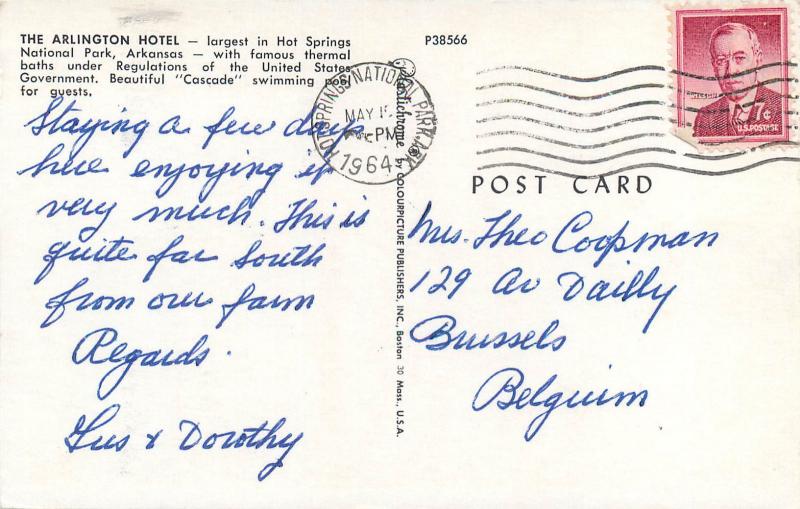 THE ARLINGTON HOTEL — largest in Hot Springs
National Park, Arkansas — with famous thermal
baths under Regulations of the United States
Government. Beautiful "Cascade" swimming pool
for guests.
P38566
HOT SPRINGS NATIONAL PARK, ARK.
MAY
PM
1964
7¢
U.S. POSTAGE
POST CARD
Plastichrome by COLOURPICTURE PUBLISHERS, INC., Boston 30 Mass., U.S.A.
Staying a few days
here enjoying it
very much. This is
quite far South
from our farm
Regards.
Gus & Dorothy
Mrs. Theo Coopman
129 Av Dailly
Brussels
Belguim